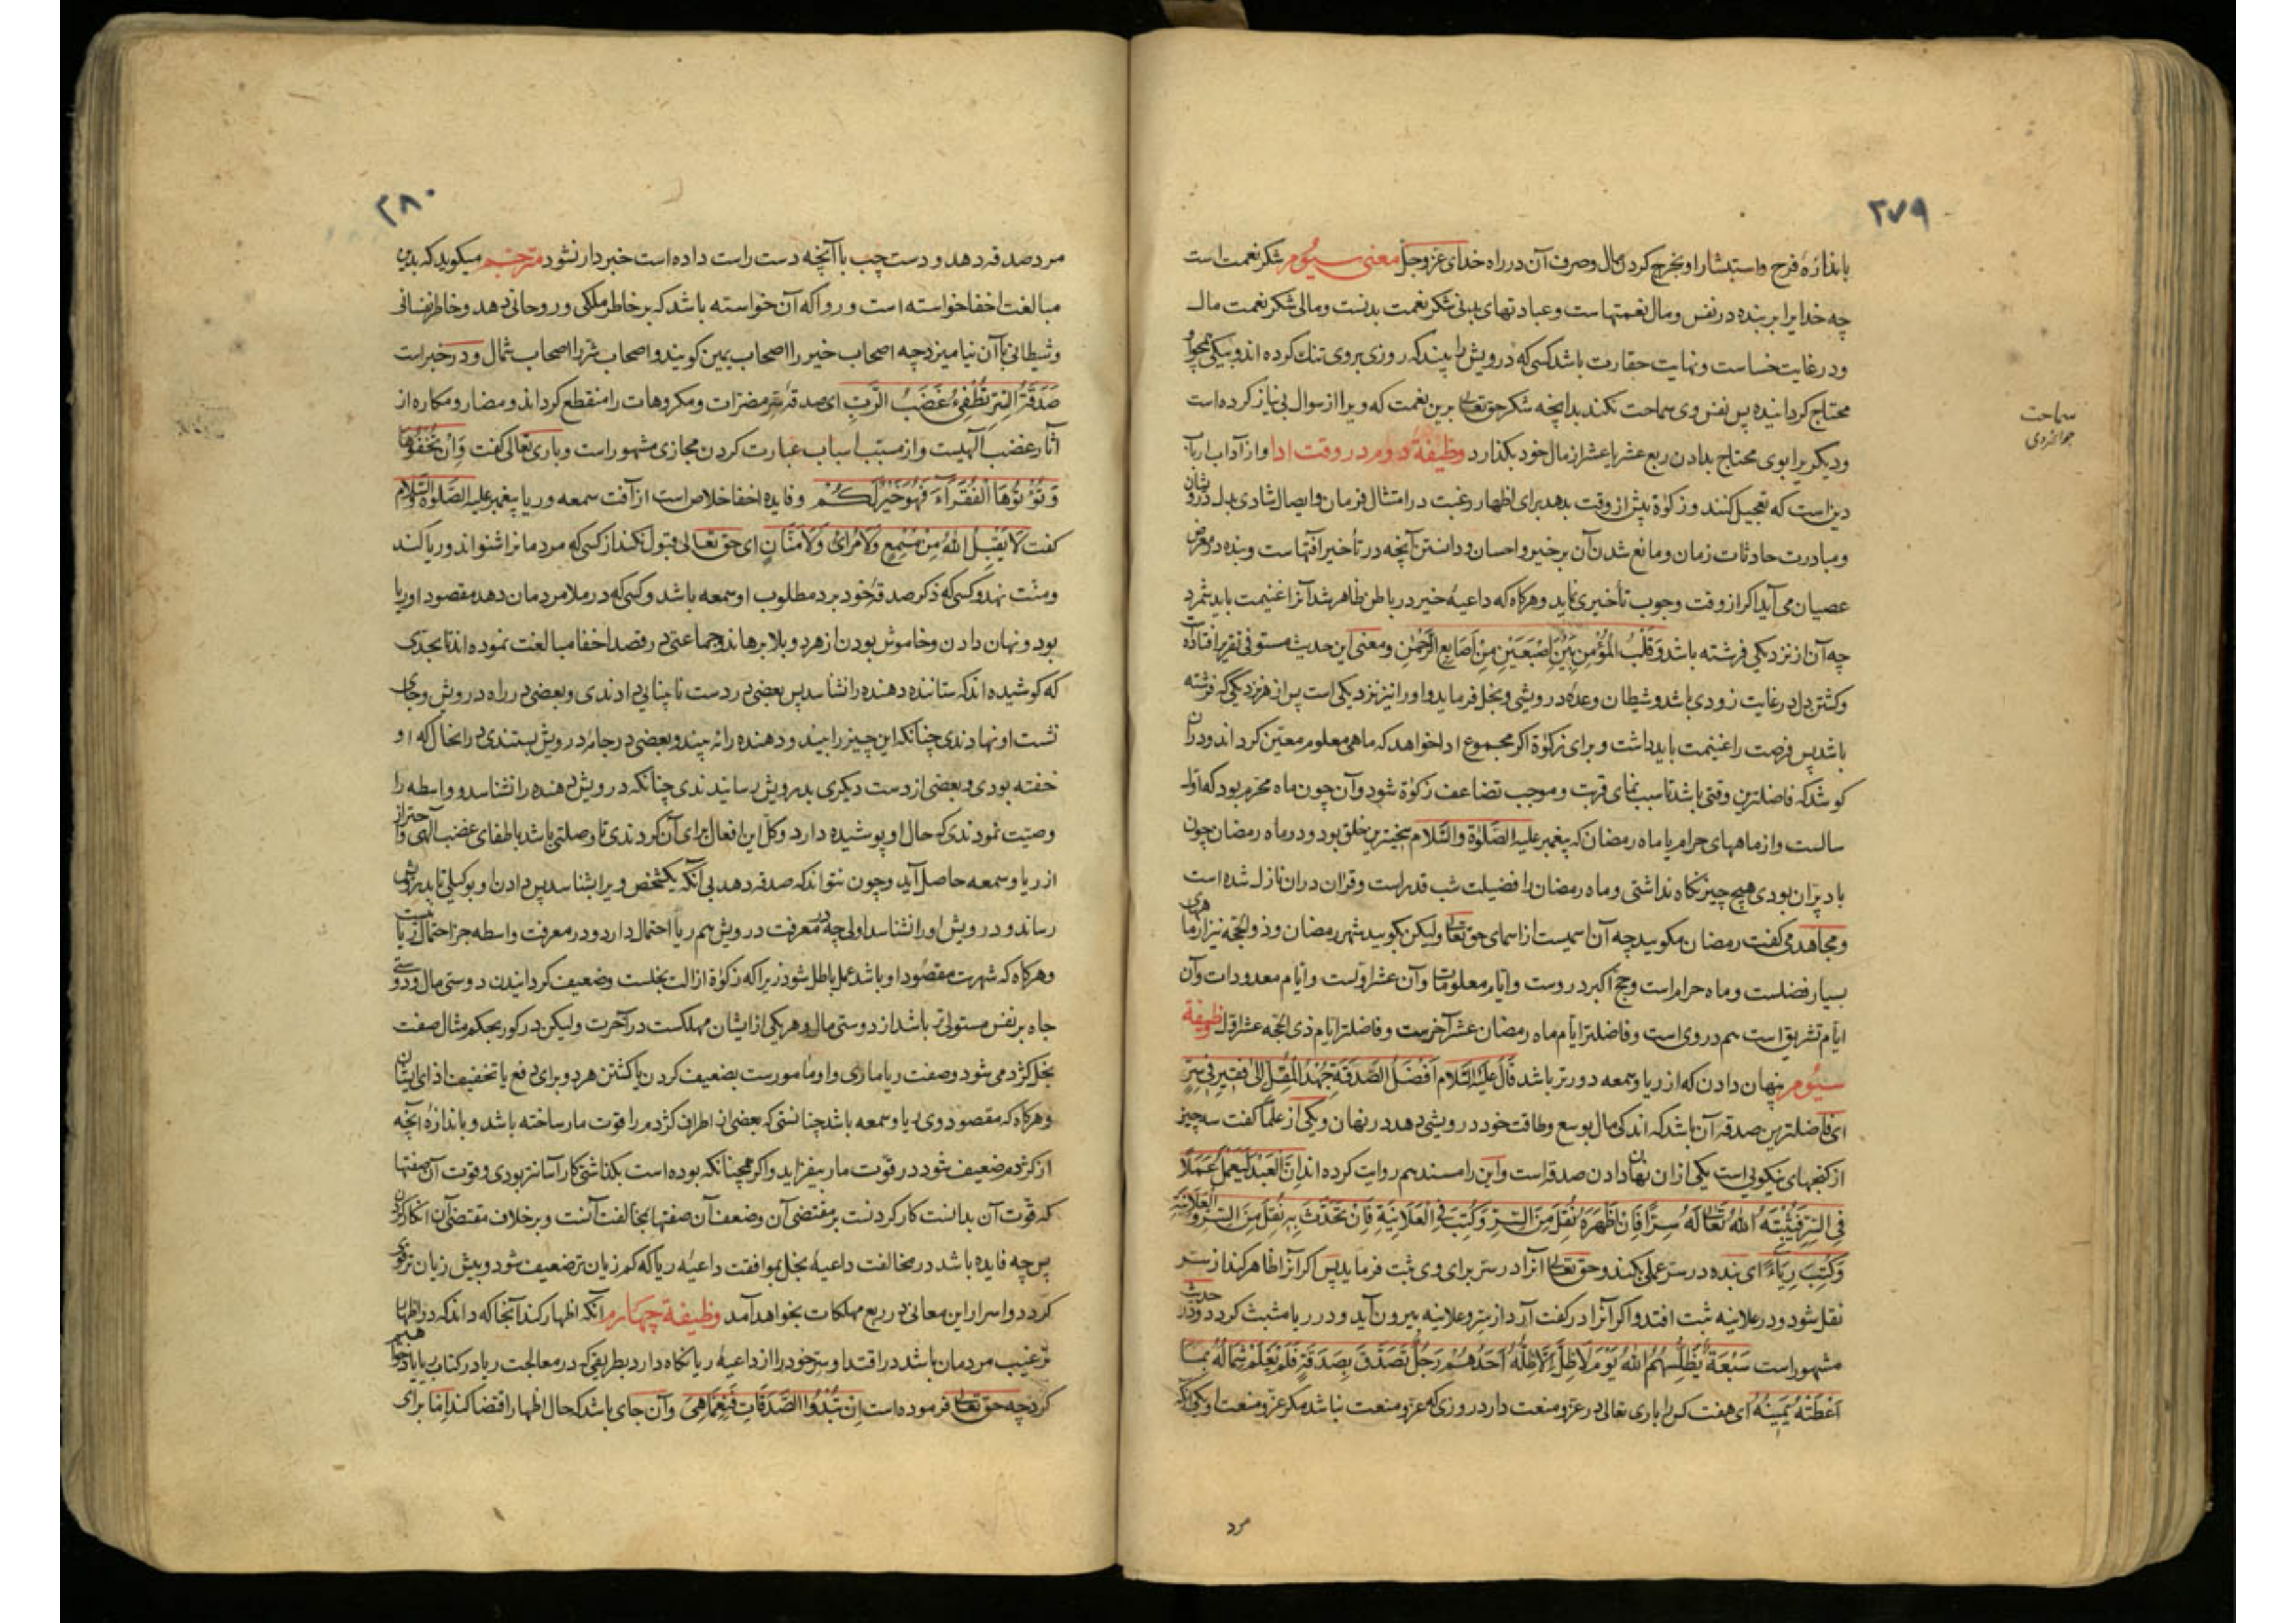 ۲۷۹
باندازهٔ فرح و استبشار او بخرج کردن مال و صرف آن در راه خدای عزوجل معنی سیوم شکر نعمت است
چه خدایرا بر بنده در نفس و مال نعمتهاست و عبادتهای بدنی شکر نعمت بدنست و مالی شکر نعمت مال
و در غایت خساست و نهایت حقارت باشد کسی که درویش را بیند که روزی بروی تنک کرده اند و بیکی همچو او
محتاج کردانیده پس نفس وی سماحت نکند بدانچه شکر حق تعالی برین نعمت که ویرا از سوال بی نیاز کرده است
سماحت
جوانمردی
و دیکریرا بوی محتاج بدادن ربع عشر یا عشر از مال خود بکذارد وظیفهٔ دوم در وقت ادا و از آداب ارباب
دین است که تعجیل کنند و زکوة پیش از وقت بدهد برای اظهار رغبت در امتثال فرمان و ایصال شادی بدل درویشان
و مبادرت حادثات زمان و مانع شدن آن بر خیر و احسان و دانستن آنچه در تأخیر آفتهاست و بنده در معرض
عصیان می آید اکر از وقت وجوب تأخیری نماید و هرکاه که داعیهٔ خیر در باطن ظاهر شد آنرا غنیمت باید شمرد
چه آن از نزدیکی فرشته باشد و قَلْبُ المُؤْمِنِ بَیْنَ اِصْبَعَیْنِ مِنْ اَصَابِعِ الرَّحْمٰنِ و معنی این حدیث مستوفی تقریر افتاده است
و کشتن دل در غایت زودی باشد و شیطان وعده درویشی و بخل فرماید و او را نیز نزدیکی است پس از هر نزدیکی که فرشته
باشد پس فرصت را غنیمت باید داشت و برای زکوة اکر مجموع ادا خواهد که ماهی معلوم معین کرداند و در آن
کوشد که فاضلترین وقتی باشد تا سبب نمای قربت و موجب تضاعف زکوة شود و آن چون ماه محرم بود که اول
سالست و از ماههای حرام یا ماه رمضان که پیغمبر علیه الصَّلوة والسَّلام بخیترین خلق بود و در ماه رمضان چون
باد پرّان بودی هیچ چیز نکاه نداشتی و ماه رمضان را فضیلت شب قدر است و قران دران نازل شده است
و مجاهد می کفت رمضان مکویید چه آن اسمیست از اسمای حق تعالی ولیکن بکویید شهر رمضان و ذوالحجه نیز از ماههای
بسیار فضلست و ماه حرام است و حج اکبر در وست و ایام معلومات و آن عشر اولست و ایام معدودات و آن
ایام تشریق است هم در وی است و فاضلتر ایام ماه رمضان عشر آخرست و فاضلتر ایام ذی الحجه عشر اول وظیفهٔ
سیوم پنهان دادن که از ریا و سمعه دورتر باشد قَالَ عَلَیْهِ السَّلام اَفْضَلُ الصَّدَقَةِ جُهْدُ المُقِلِّ اِلیٰ فَقِیرٍ فِی سِرٍّ
ای فاضلترین صدقه آن باشد که اندکی مال بوسع و طاقت خود درویشی دهد در نهان و یکی از علما کفت سه چیز
از کنجهای نیکویی است یکی ازان نهان دادن صدقه است و این را مسند هم روایت کرده اند اِنَّ الْعَبْدَ لَیَعْمَلُ عَمَلاً
فِی السِّرِّ فَیُثْبِتُهُ اللهُ تَعَالیٰ لَهُ سِرًّا فَاِنْ اَظْهَرَهُ نُقِلَ مِنَ السِّرِّ وَکُتِبَ فِی الْعَلَانِیَةِ فَاِنْ تَحَدَّثَ بِهِ نُقِلَ مِنَ السِّرِّ وَالعَلَانِیَّةِ
وَکُتِبَ رِیَاءً ای بنده در سر عملی کند و حق تعالی آنرا در سر برای وی ثبت فرماید پس اکر آنرا ظاهر کند از سر
نقل شود و در علانیه ثبت افتد و اکر آنرا در کفت آرد از سر و علانیه بیرون آید و در ریا مثبت کردد و در حدیث
مشهور است سَبْعَةٌ یُظِلُّهُمُ اللهُ یَوْمَ لَاظِلَّ اِلَّا ظِلُّهُ اَحَدُهُمْ رَجُلٌ تَصَدَّقَ بِصَدَقَةٍ فَلَمْ تَعْلَمْ شِمَالُهُ بِمَا
اَعْطَتْهُ یَمِینُهُ ای هفت کس را باری تعالی در عز و منعت دارد روزی که عز و منعت نباشد مکر عز و منعت او یکی آنکه
مرد
۲۸۰
مرد صدقه دهد و دست چپ با آنچه دست راست داده است خبردار نشود مترجم میکوید که بدین
مبالغت اخفا خواسته است و روا که آن خواسته باشد که بر خاطر ملکی و روحانی دهد و خاطر نفسانی
و شیطانی با آن نیامیزد چه اصحاب خیر را اصحاب یمین کویند و اصحاب شر را اصحاب شمال و در خبر است
صَدَقَةُ السِّرِّ تُطْفِیُٔ غَضَبَ الرَّبِّ ای صدقهٔ سر مضرات و مکروهات را منقطع کرداند و مضار و مکاره از
آثار غضب الهیست و از مسبب اسباب عبارت کردن مجازی مشهور است و باری تعالی کفت وَاِنْ تُخْفُوهَا
وَتُؤْتُوهَا الْفُقَرَاءَ فَهُوَ خَیْرٌ لَکُمْ و فایده اخفا خلاص است از آفت سمعه و ریا پیغمبر علیه الصَّلوة والسَّلام
کفت لَا یَقْبَلُ اللهُ مِنْ مُسَمِّعٍ وَلَا مُرَائٍ وَلَا مَنَّانٍ ای حق تعالی قبول نکند از کسی که مردمانرا شنواند و ریا کند
و منت نهد و کسی که ذکر صدقهٔ خود برد مطلوب او سمعه باشد و کسی که در ملا مردمان دهد مقصود او ریا
بود و نهان دادن و خاموش بودن از هر دو بلا برهاند و جماعتی در قصد اخفا مبالغت نموده اند تا بحدی
که کوشیده اند که ستاننده دهنده را نشناسد پس بعضی در دست نابینایی دادندی و بعضی در راه درویش و جای
نشست او نهادندی چنانکه این چیز را بیند و دهنده را نه بیند و بعضی در جامهٔ درویش بستندی در انحال که او
خفته بودی و بعضی از دست دیکری بدرویش رسانیدندی چنانکه درویش دهنده را نشناسد و واسطه را
وصیت نمودندی که حال او پوشیده دارد و کل این افعال برای آن کردندی تا وصلتی باشد باطفای غضب الهی و احتراز
از ریا و سمعه حاصل آید و چون نتواند که صدقه دهد بی آنکه یکشخص ویرا بشناسد پس دادن او بوکیلی تا بدرویش
رساند و درویش او را نشناسد اولی چه در معرفت درویش هم ریا احتمال دارد و در معرفت واسطه جز احتمال ریا نیست
و هرکاه که شهرت مقصود او باشد عمل باطل شود زیرا که زکوة ازالت بخلست و ضعیف کردانیدن دوستی مال و دوستی
جاه بر نفس مستولی تر باشد از دوستی مال و هر یکی از ایشان مهلکست در آخرت ولیکن در کور بحکم مثال صفت
بخل کژدمی شود و صفت ریا ماری و او مامورست بضعیف کردن یا کشتن هر دو برای دفع یا تخفیف اذای ایشان
و هرکاه که مقصود وی ریا و سمعه باشد چنانستی که بعضی از اطراف کژدم را قوت مار ساخته باشد و باندازهٔ آنچه
از کژدم ضعیف شود در قوت مار بیفزاید و اکر همچنانکه بوده است بکذاشتی کار آسانتر بودی و قوت آن صفتها
که قوت آن بدانست کار کردنست بر مقتضی آن و ضعف آن صفتها بمخالفت آنست و بر خلاف مقتضی آن کار کردن
پس چه فایده باشد در مخالفت داعیهٔ بخل بموافقت داعیهٔ ریا که کم زیان تر ضعیف شود و بیش زیان تر قوی
کردد و اسرار این معانی در ربع مهلکات بخواهد آمد وظیفهٔ چهارم آنکه اظهار کند آنجا که داند که در اظهار
ترغیب مردمان باشد در اقتدا و سر خود را از داعیهٔ ریا نکاه دارد بطریقی که در معالجت ریا در کتاب ریا یاد خواهیم
کرد چه حق تعالی فرموده است اِنْ تُبْدُوا الصَّدَقَاتِ فَنِعِمَّاهِیَ و آن جای باشد که حال اظهار اقتضا کند اما برای